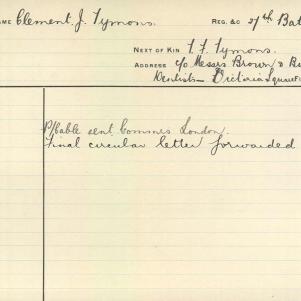 AME Clement. J. Tymons. REG. &C 27th Bat
NEXT OF KIN T. F. Tymons.
ADDRESS c/o Messrs Brown &
Dentists Victoria Square
P/Cable sent Commrs London.
Final circular letter forwarded